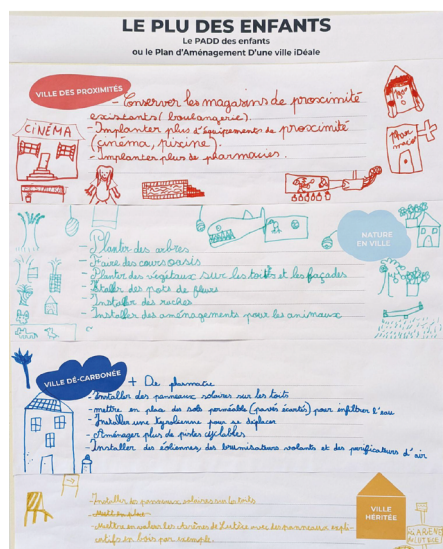 LE PLU DES ENFANTS
Le PADD des enfants
ou le Plan d'Aménagement D'une ville iDéale
VILLE DES PROXIMITÉS
- Conserver les magasins de proximité
existants (boulangerie).
- Implanter plus d'équipements de proximité
(cinéma, piscine).
- Implanter plus de pharmacies.
CINÉMA
NATURE
EN VILLE
- Planter des arbres
- Faire des cours oasis
- Planter des végétaux sur les toits et les façades
- des pots de fleurs
- Installer des ruches
- Installer des aménagements pour les animaux
VILLE DÉ-CARBONÉE
+ De pharmacie
- Installer des panneaux solaires sur les toits
- mettre en place du sols perméable (pavés écartés) pour infiltrer l'eau
- Installer une tyrolienne pour se déplacer
- Aménager plus de pistes cyclables
- Installer des éoliennes des brumisateurs volants et des purificateurs d'air
VILLE
HÉRITÉE
Installer les panneaux solaires sur les toits
- Mettre en valeur les Arènes de Lutèce avec des panneaux expli-
catifs en bois par exemple.